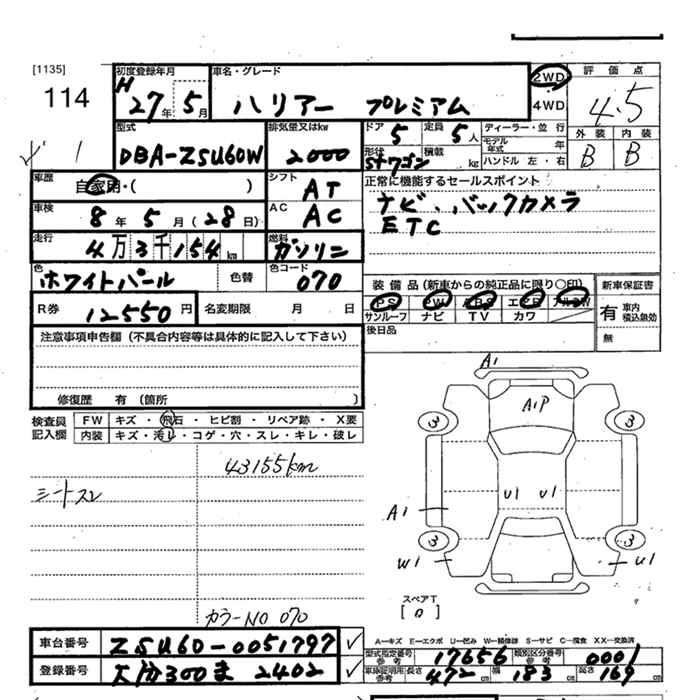 [1135]
114
初度登録年月
H 27年 5月
車名・グレード
ハリアー プレミアム
2WD
4WD
評価点
4.5
外装 内装
B B
型式
DBA-ZSU60W
排気量又はkw
2000
ドア 5
定員 5人
形状 StワゴN
積載 kg
ディーラー・並行
モデル年式 年
ハンドル 左・右
車歴
自家用・( )
シフト
AT
正常に機能するセールスポイント
ナビ、バックカメラ
ETC
車検
8年 5月(28日)
AC
AC
走行
4万3千154km
燃料
ガソリン
色
ホワイトパール
色替
色コード
070
装備品(新車からの純正品に限り○印)
PS PW ABS エアB アルミW
サンルーフ ナビ TV カワ
後日品
新車保証書
有 車内積込無効
無
R券
12550円
名変期限 月 日
注意事項申告欄(不具合内容等は具体的に記入して下さい)
修復歴 有(箇所 )
検査員
記入欄
FW キズ・飛石・ヒビ割・リペア跡・X要
内装 キズ・汚レ・コゲ・穴・スレ・キレ・破レ
43155km
シートスレ
カラーNO 070
A1
A1P
3
3
U1 U1
A1
3
3
W1
U1
スペアT
[0]
A-キズ E-エクボ U-凹み W-補修跡 S-サビ C-腐食 XX-交換済
車台番号
ZSU60-0051797
登録番号
大分300ま 2402
型式指定番号 参考
17656
類別区分番号 参考
0001
車検証明用 参考
長さ 472cm
幅 183cm
高さ 169cm